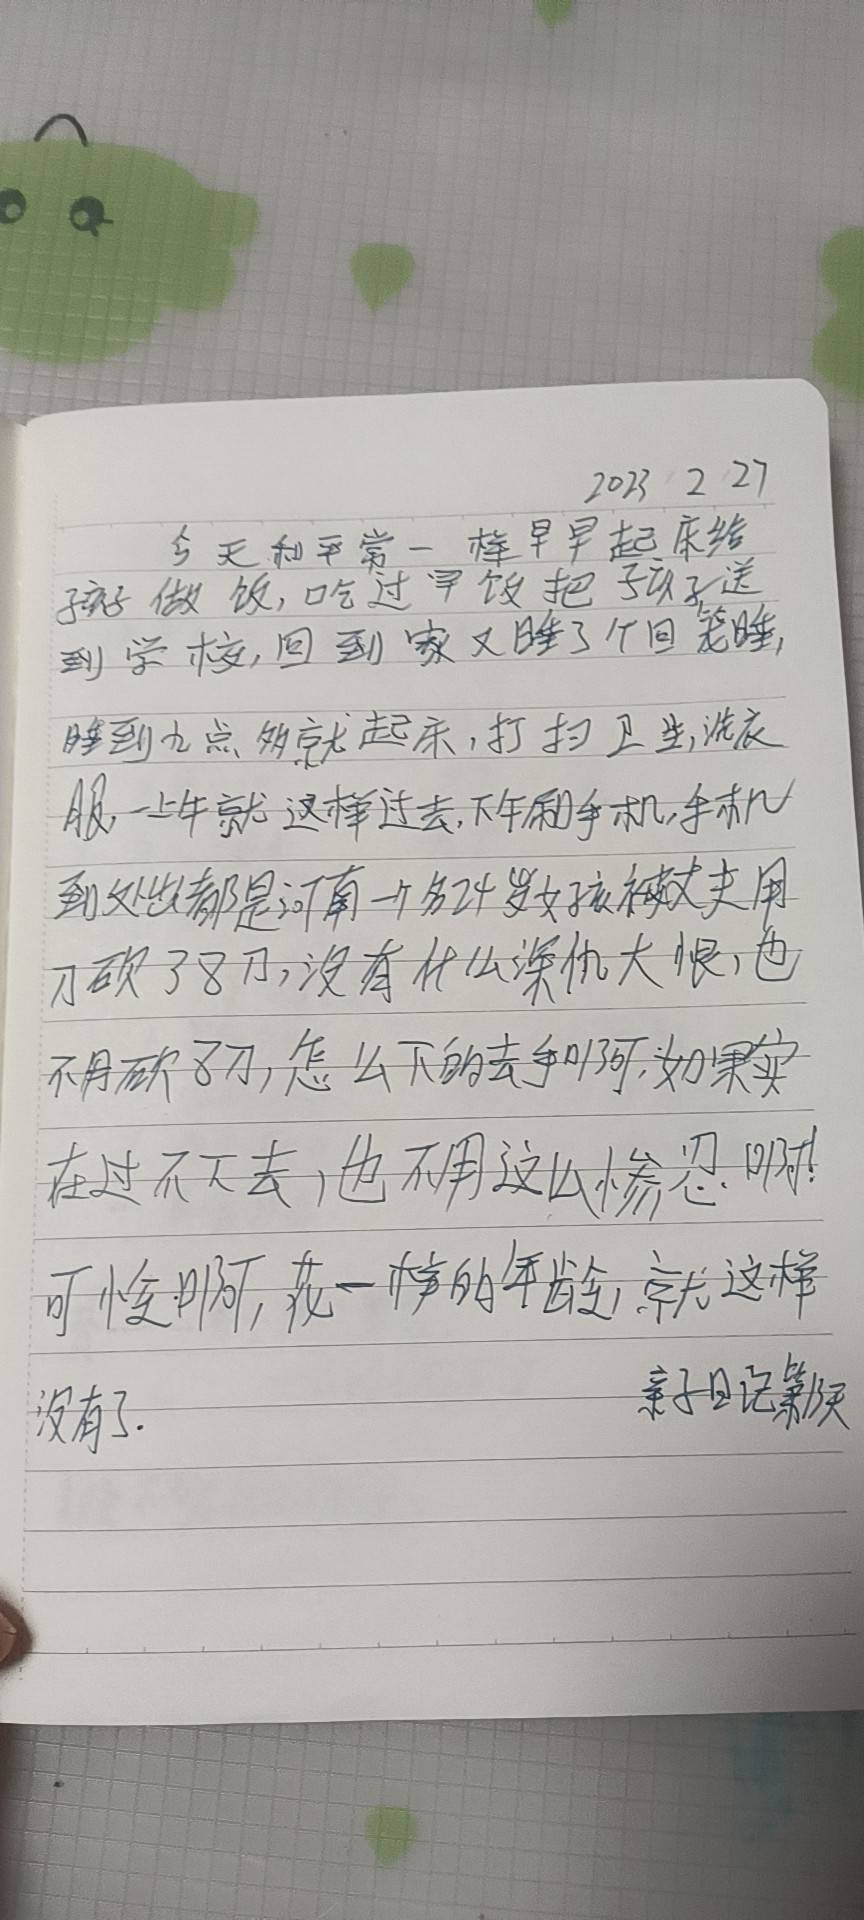 2023 2 27
今天和平常一样早早起床给
孩子做饭,吃过早饭把孩子送
到学校,回到家又睡了个回笼睡,
睡到九点多就起床,打扫卫生,洗衣
服,一上午就这样过去,下午刷手机,手机
到处都是河南一个名24岁女孩被丈夫用
刀砍了8刀,没有什么深仇大恨,也
不用砍8刀,怎么下的去手啊,如果实
在过不下去,也不用这么惨忍啊!
可惜啊,花一样的年龄,就这样
没有了.
亲子日记第 天